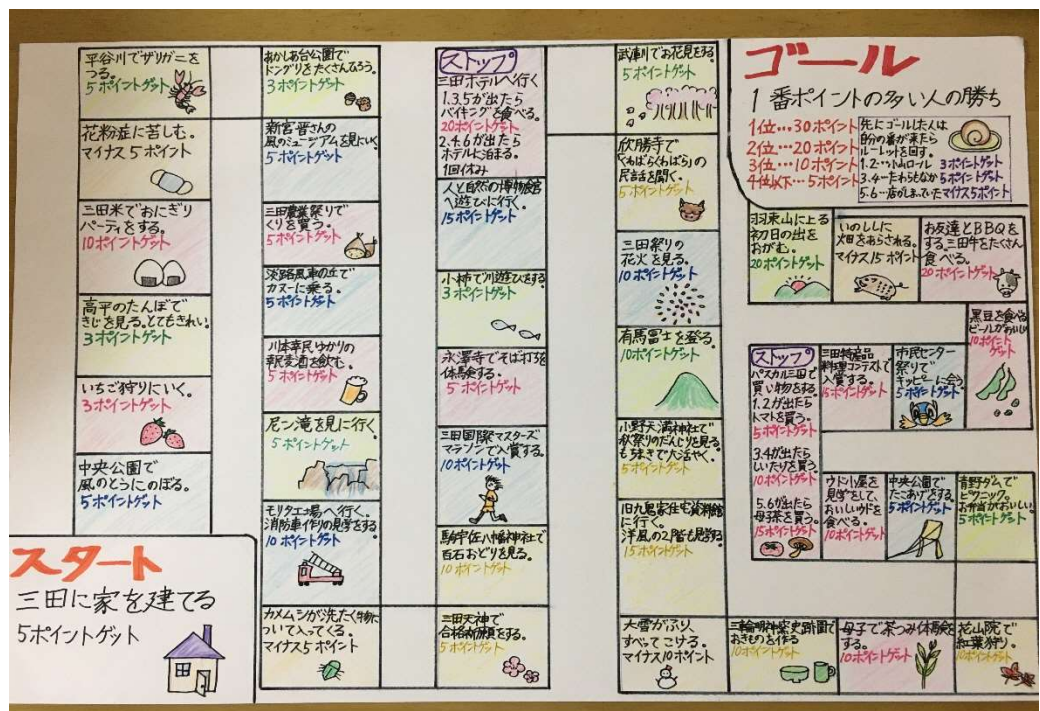 スタート
三田に家を建てる
5ポイントゲット
中央公園で
風のとうにのぼる。
5ポイントゲット
いちご狩りにいく。
3ポイントゲット
高平のたんぼで
きじを見る。とてもきれい。
3ポイントゲット
三田米でおにぎり
パーティをする。
10ポイントゲット
花粉症に苦しむ。
マイナス5ポイント
平谷川でザリガニを
つる。
5ポイントゲット
あかしあ台公園で
ドングリをたくさんひろう。
3ポイントゲット
新宮晋さんの
風のミュージアムを見にいく
5ポイントゲット
三田農業祭りで
くりを買う。
5ポイントゲット
淡路風車の丘で
カヌーに乗る。
5ポイントゲット
川本幸民ゆかりの
幸民麦酒を飲む。
5ポイントゲット
尼ン滝を見に行く。
5ポイントゲット
モリタ工場へ行く。
消防車作りの見学をする
10ポイントゲット
カメムシが洗たく物に
ついて入ってくる。
マイナス5ポイント
三田天神で
合格祈願をする。
5ポイントゲット
駒宇佐八幡神社で
百石おどりを見る。
10ポイントゲット
三田国際マスターズ
マラソンで入賞する。
10ポイントゲット
永澤寺でそば打ちを
体験する。
5ポイントゲット
小柿で川遊びをする
3ポイントゲット
人と自然の博物館
へ遊びに行く。
15ポイントゲット
ストップ
三田ホテルへ行く
1.3.5が出たら
バイキングを食べる。
20ポイントゲット
2.4.6が出たら
ホテルに泊まる。
1回休み
武庫川でお花見をする
5ポイントゲット
欣勝寺で
「くわばらくわばら」の
民話を聞く。
5ポイントゲット
三田祭りの
花火を見る。
10ポイントゲット
有馬富士を登る。
10ポイントゲット
小野天満神社で
秋祭りのだんじりを見る。
もちまきで大活やく。
5ポイントゲット
旧九鬼家住宅資料館
に行く。
洋風の2階も見学する。
15ポイントゲット
大雪がふり、
すべってこける。
マイナス10ポイント
三輪明神窯史跡園で
おきものを作る
10ポイントゲット
母子で茶つみ体験をする
10ポイントゲット
花山院で
紅葉狩り。
10ポイントゲット
青野ダムで
ピクニック。
お弁当がおいしい。
5ポイントゲット
中央公園で
たこあげをする。
5ポイントゲット
ウド小屋を
見学をして、
おいしいウドを
食べる。
10ポイントゲット
ストップ
パスカル三田で
買い物をする。
1.2が出たら
トマトを買う。
5ポイントゲット
3.4が出たら
しいたけを買う。
10ポイントゲット
5.6が出たら
母子茶を買う。
15ポイントゲット
三田特産品
料理コンテストで
入賞する。
15ポイントゲット
市民センター
祭りで
キッピーに会う
5ポイントゲット
黒豆を食べる
ビールがおいしい
10ポイント
ゲット
お友達とBBQを
する。三田牛をたくさん
食べる。
20ポイントゲット
いのししに
畑をあらされる。
マイナス15ポイント
羽束山に上る
初日の出を
おがむ。
20ポイントゲット
ゴール
1番ポイントの多い人の勝ち
1位…30ポイント
2位…20ポイント
3位…10ポイント
4位以下…5ポイント
先にゴールした人は
自分の番が来たら
ルーレットを回す。
1.2…小山ロール 3ポイントゲット
3.4…たわらもなか5ポイントゲット
5.6…店がしまっていたマイナス5ポイント